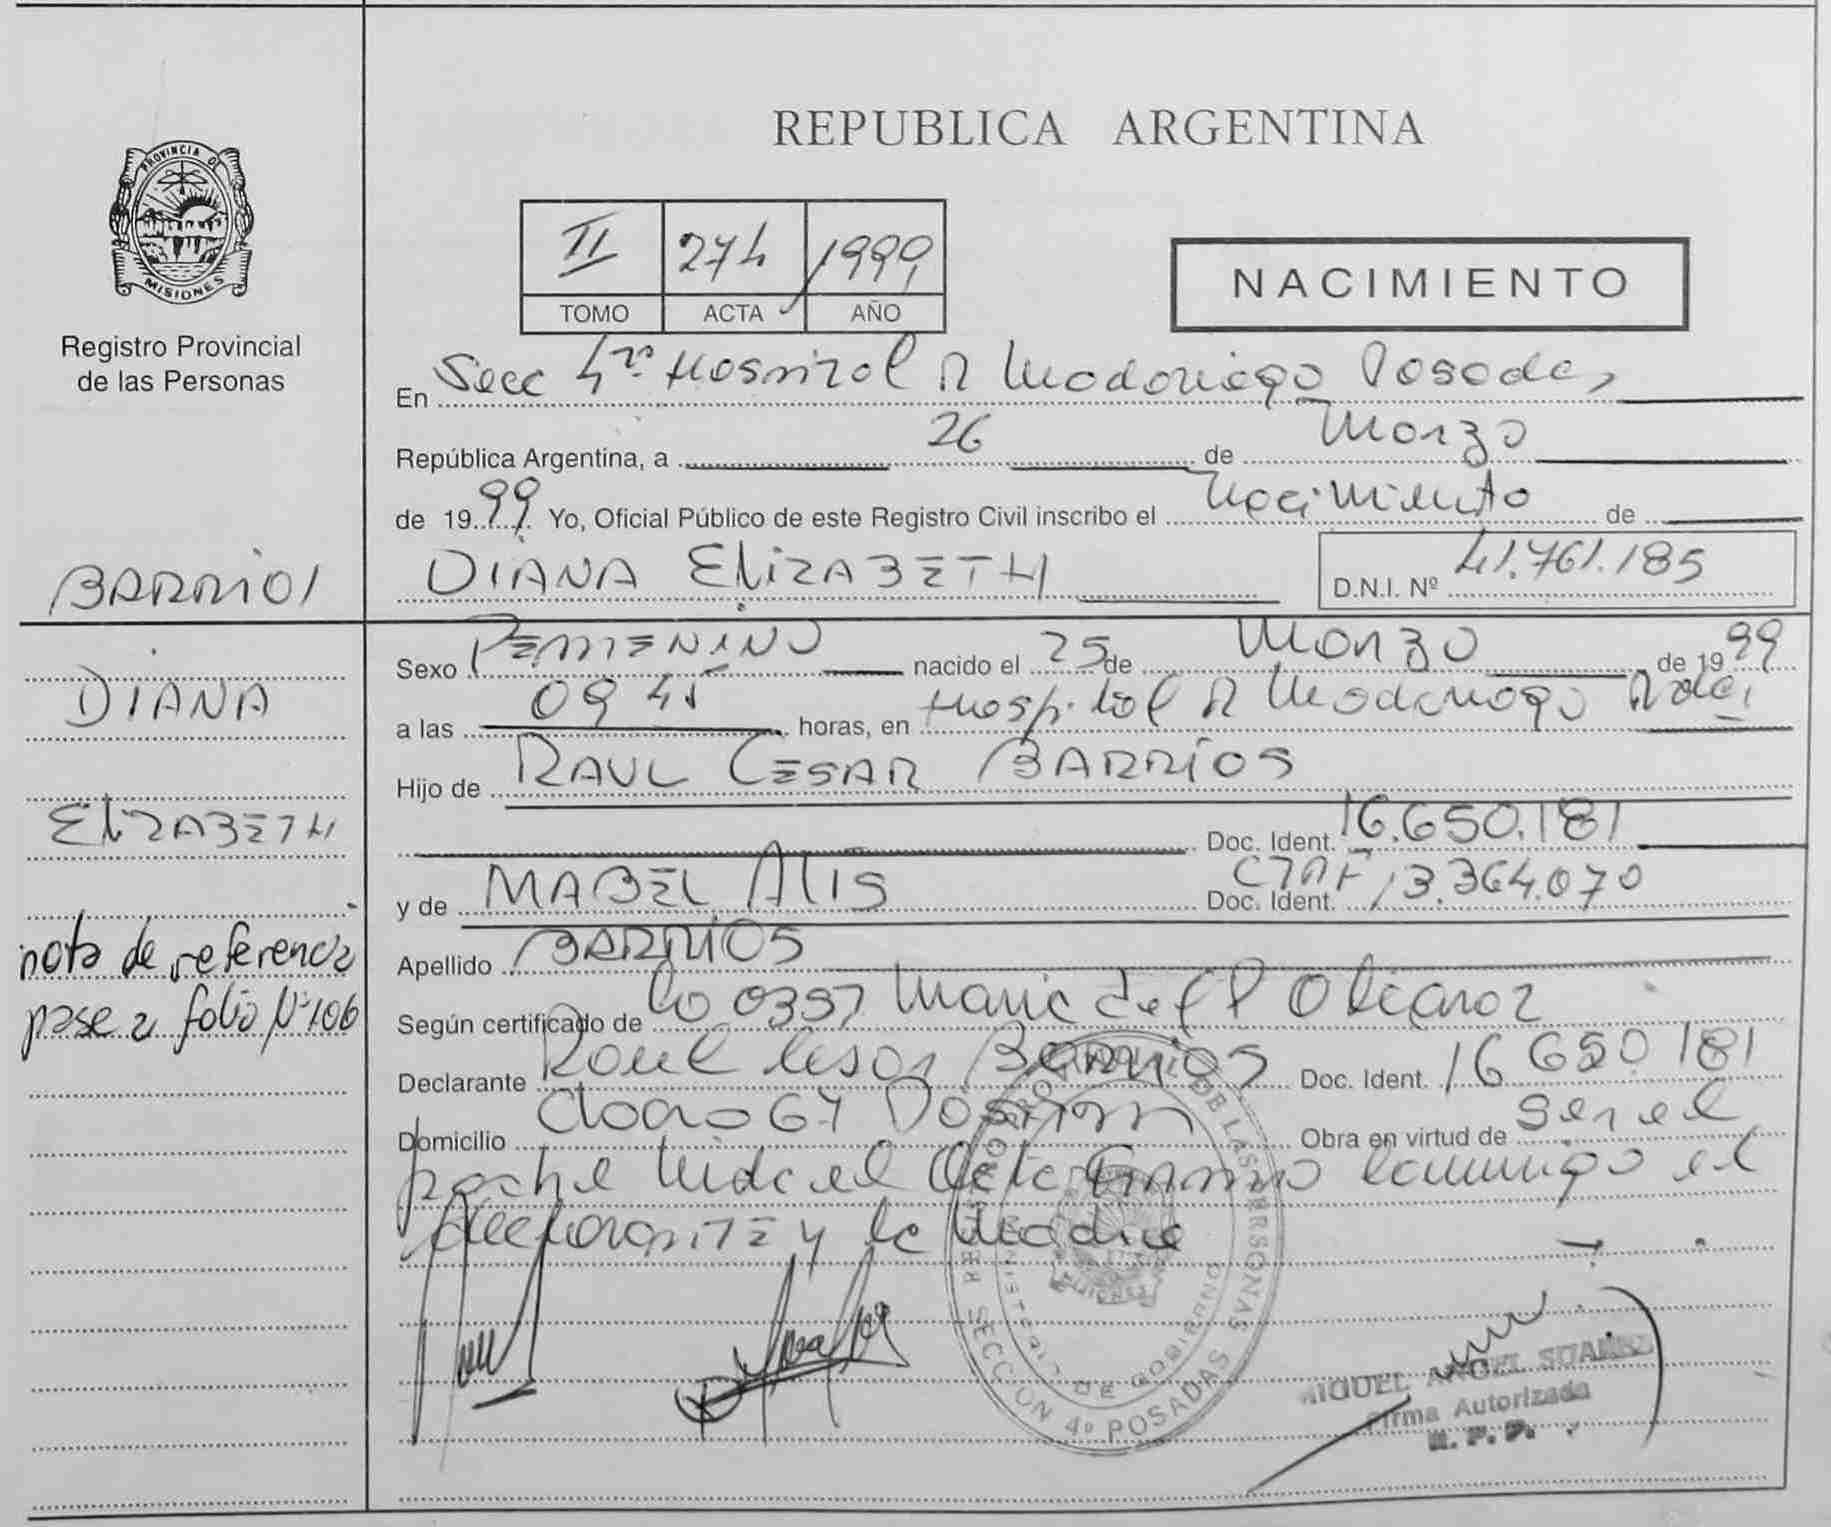 REPUBLICA ARGENTINA
PROVINCIA DE
MISIONES
Registro Provincial
de las Personas
II 274 1999
TOMO ACTA AÑO
NACIMIENTO
En Secc 4ta Hospital R Madariaga Posadas
República Argentina, a 26 de Marzo
de 1999 Yo, Oficial Público de este Registro Civil inscribo el Nacimiento de
DIANA ELIZABETH D.N.I. Nº 41.761.185
BARRIOS
DIANA
ELIZABETH
nota de referencia
pase a folio Nº 106
Sexo FEMENINO nacido el 25 de Marzo de 1999
a las 09 45 horas, en Hospital R Madariaga
Hijo de RAUL CESAR BARRIOS
Doc. Ident. 16.650.181
y de MABEL ALIS Doc. Ident. 13.364.070
Apellido BARRIOS
Según certificado de Maria del P
Declarante Raul Cesar Barrios Doc. Ident. 16 650 181
Domicilio Obra en virtud de ser el
padre Firman conmigo el
declarante y la Madre
MINISTERIO DE GOBIERNO
SECCION 4º POSADAS
DE LAS PERSONAS
MIGUEL ANGEL SUAREZ
Firma Autorizada
R. P. P.